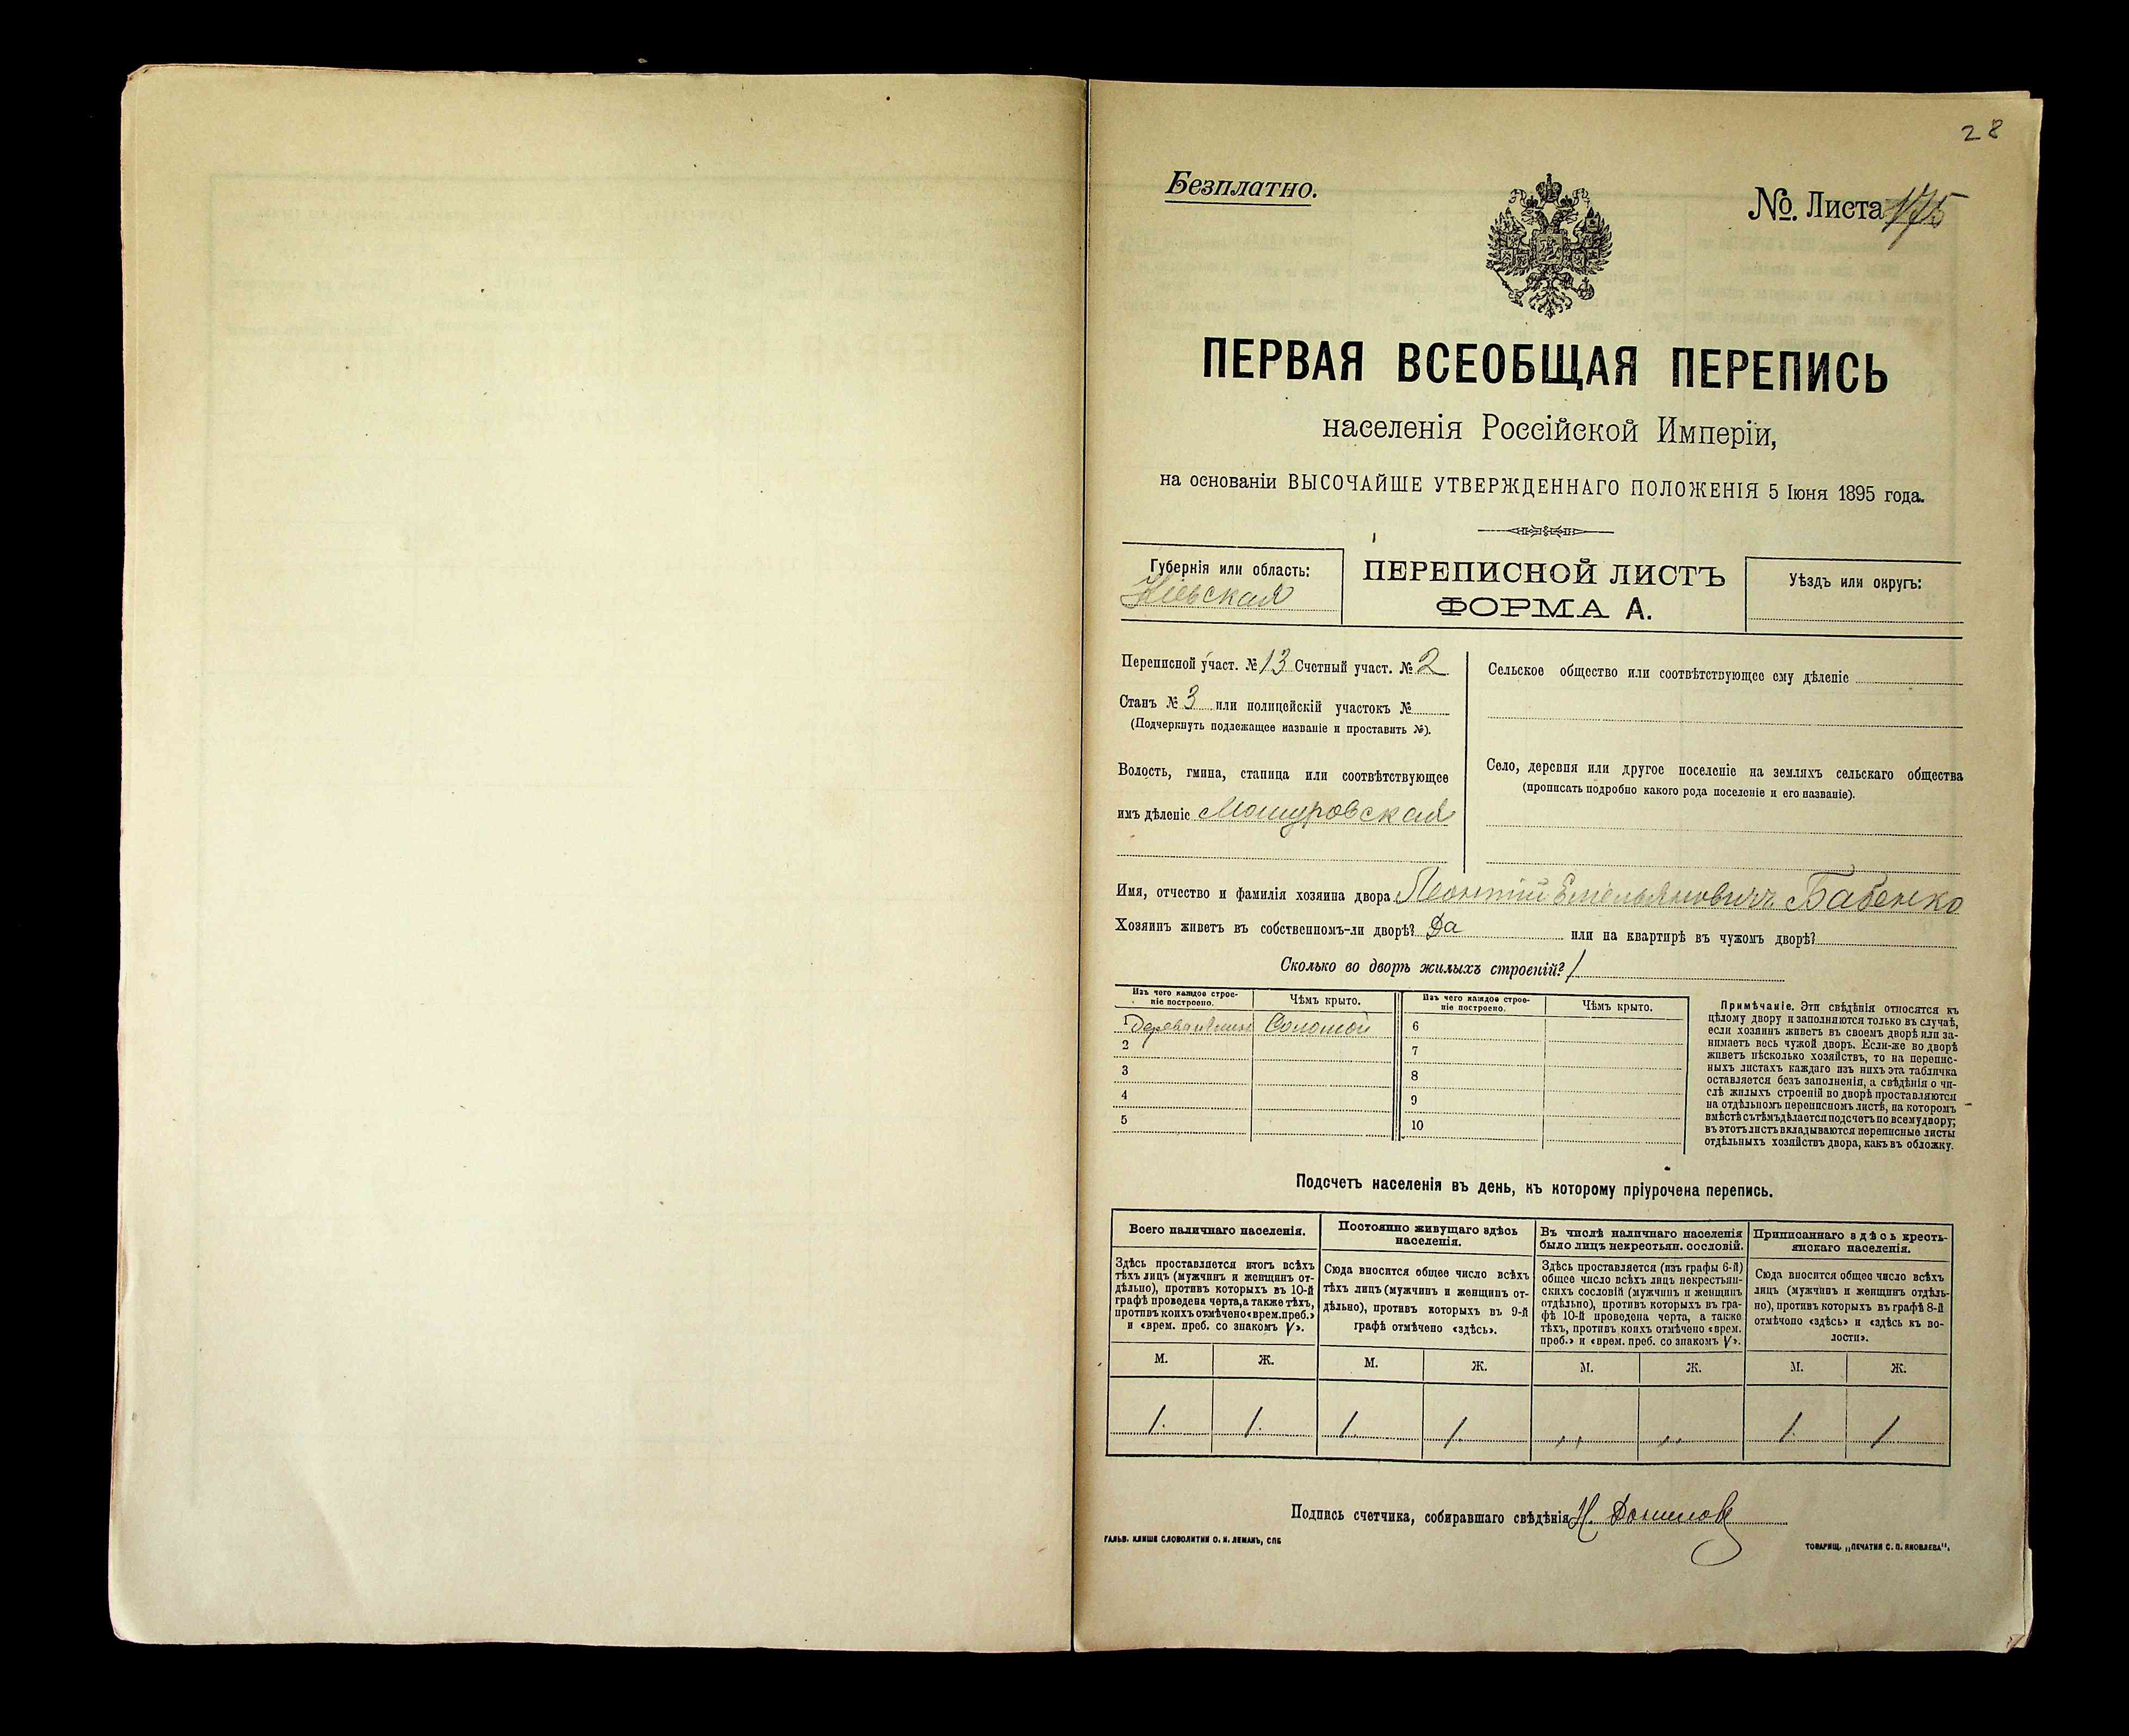 28
Безплатно.
№. Листа 175
ПЕРВАЯ ВСЕОБЩАЯ ПЕРЕПИСЬ
населенія Россійской Имперіи,
на основаніи ВЫСОЧАЙШЕ УТВЕРЖДЕННАГО ПОЛОЖЕНІЯ 5 Іюня 1895 года.
Губернія или область:
Кіевская
ПЕРЕПИСНОЙ ЛИСТЪ
ФОРМА А.
Уѣздъ или округъ:
Переписной участ. № 13 Счетный участ. № 2
Станъ № 3 или полицейскій участокъ №
(Подчеркнуть подлежащее названіе и проставить №).
Волость, гмина, станица или соотвѣтствующее
имъ дѣленіе Мошуровская
Сельское общество или соотвѣтствующее ему дѣленіе
Село, деревня или другое поселеніе на земляхъ сельскаго общества
(прописать подробно какого рода поселеніе и его названіе).
Имя, отчество и фамилія хозяина двора Леонтій Емельяновичъ Бабенко
Хозяинъ живетъ въ собственномъ-ли дворѣ? Да или на квартирѣ въ чужомъ дворѣ?
Сколько во дворѣ жилыхъ строеній? 1
Изъ чего каждое строе-
ніе построено.
Чѣмъ крыто.
Изъ чего каждое строе-
ніе построено.
Чѣмъ крыто.
1 Соломой 6
2 7
3 8
4 9
5 10
Примѣчаніе. Эти свѣдѣнія относятся къ
цѣлому двору и заполняются только въ случаѣ,
если хозяинъ живетъ въ своемъ дворѣ или за-
нимаетъ весь чужой дворъ. Если-же во дворѣ
живетъ нѣсколько хозяйствъ, то на перепис-
ныхъ листахъ каждаго изъ нихъ эта табличка
оставляется безъ заполненія, а свѣдѣнія о чи-
слѣ жилыхъ строеній во дворѣ проставляются
на отдѣльномъ переписномъ листѣ, на которомъ
вмѣстѣ съ тѣмъ дѣлается подсчетъ по всему двору;
въ этотъ листъ вкладываются переписные листы
отдѣльныхъ хозяйствъ двора, какъ въ обложку.
Подсчетъ населенія въ день, къ которому пріурочена перепись.
Всего наличнаго населенія.
Здѣсь проставляется итогъ всѣхъ
тѣхъ лицъ (мужчинъ и женщинъ от-
дѣльно), противъ которыхъ въ 10-й
графѣ проведена черта, а также тѣхъ,
противъ коихъ отмѣчено «врем. преб.»
и «врем. преб. со знакомъ V».
Постоянно живущаго здѣсь
населенія.
Сюда вносится общее число всѣхъ
тѣхъ лицъ (мужчинъ и женщинъ от-
дѣльно), противъ которыхъ въ 9-й
графѣ отмѣчено «здѣсь».
Въ числѣ наличнаго населенія
было лицъ некрестьян. сословій.
Здѣсь проставляется (изъ графы 6-й)
общее число всѣхъ лицъ некрестьян-
скихъ сословій (мужчинъ и женщинъ
отдѣльно), противъ которыхъ въ гра-
фѣ 10-й проведена черта, а также
тѣхъ, противъ коихъ отмѣчено «врем.
преб.» и «врем. преб. со знакомъ V».
Приписаннаго здѣсь кресть-
янскаго населенія.
Сюда вносится общее число всѣхъ
лицъ (мужчинъ и женщинъ отдѣль-
но), противъ которыхъ въ графѣ 8-й
отмѣчено «здѣсь» и «здѣсь къ во-
лости».
М. Ж. М. Ж. М. Ж. М. Ж.
1. 1. 1. 1. ,, ,, 1. 1
Подпись счетчика, собиравшаго свѣдѣнія Н.
ГАЛЬВ. КЛИШЕ СЛОВОЛИТНИ О. И. ЛЕМАНЪ, СПБ
ТОВАРИЩ. „ПЕЧАТНЯ С. П. ЯКОВЛЕВА".